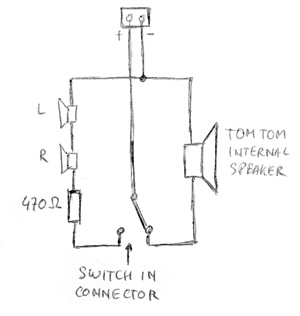 + -
L
R
470Ω
TOM TOM
INTERNAL
SPEAKER
SWITCH IN
CONNECTOR